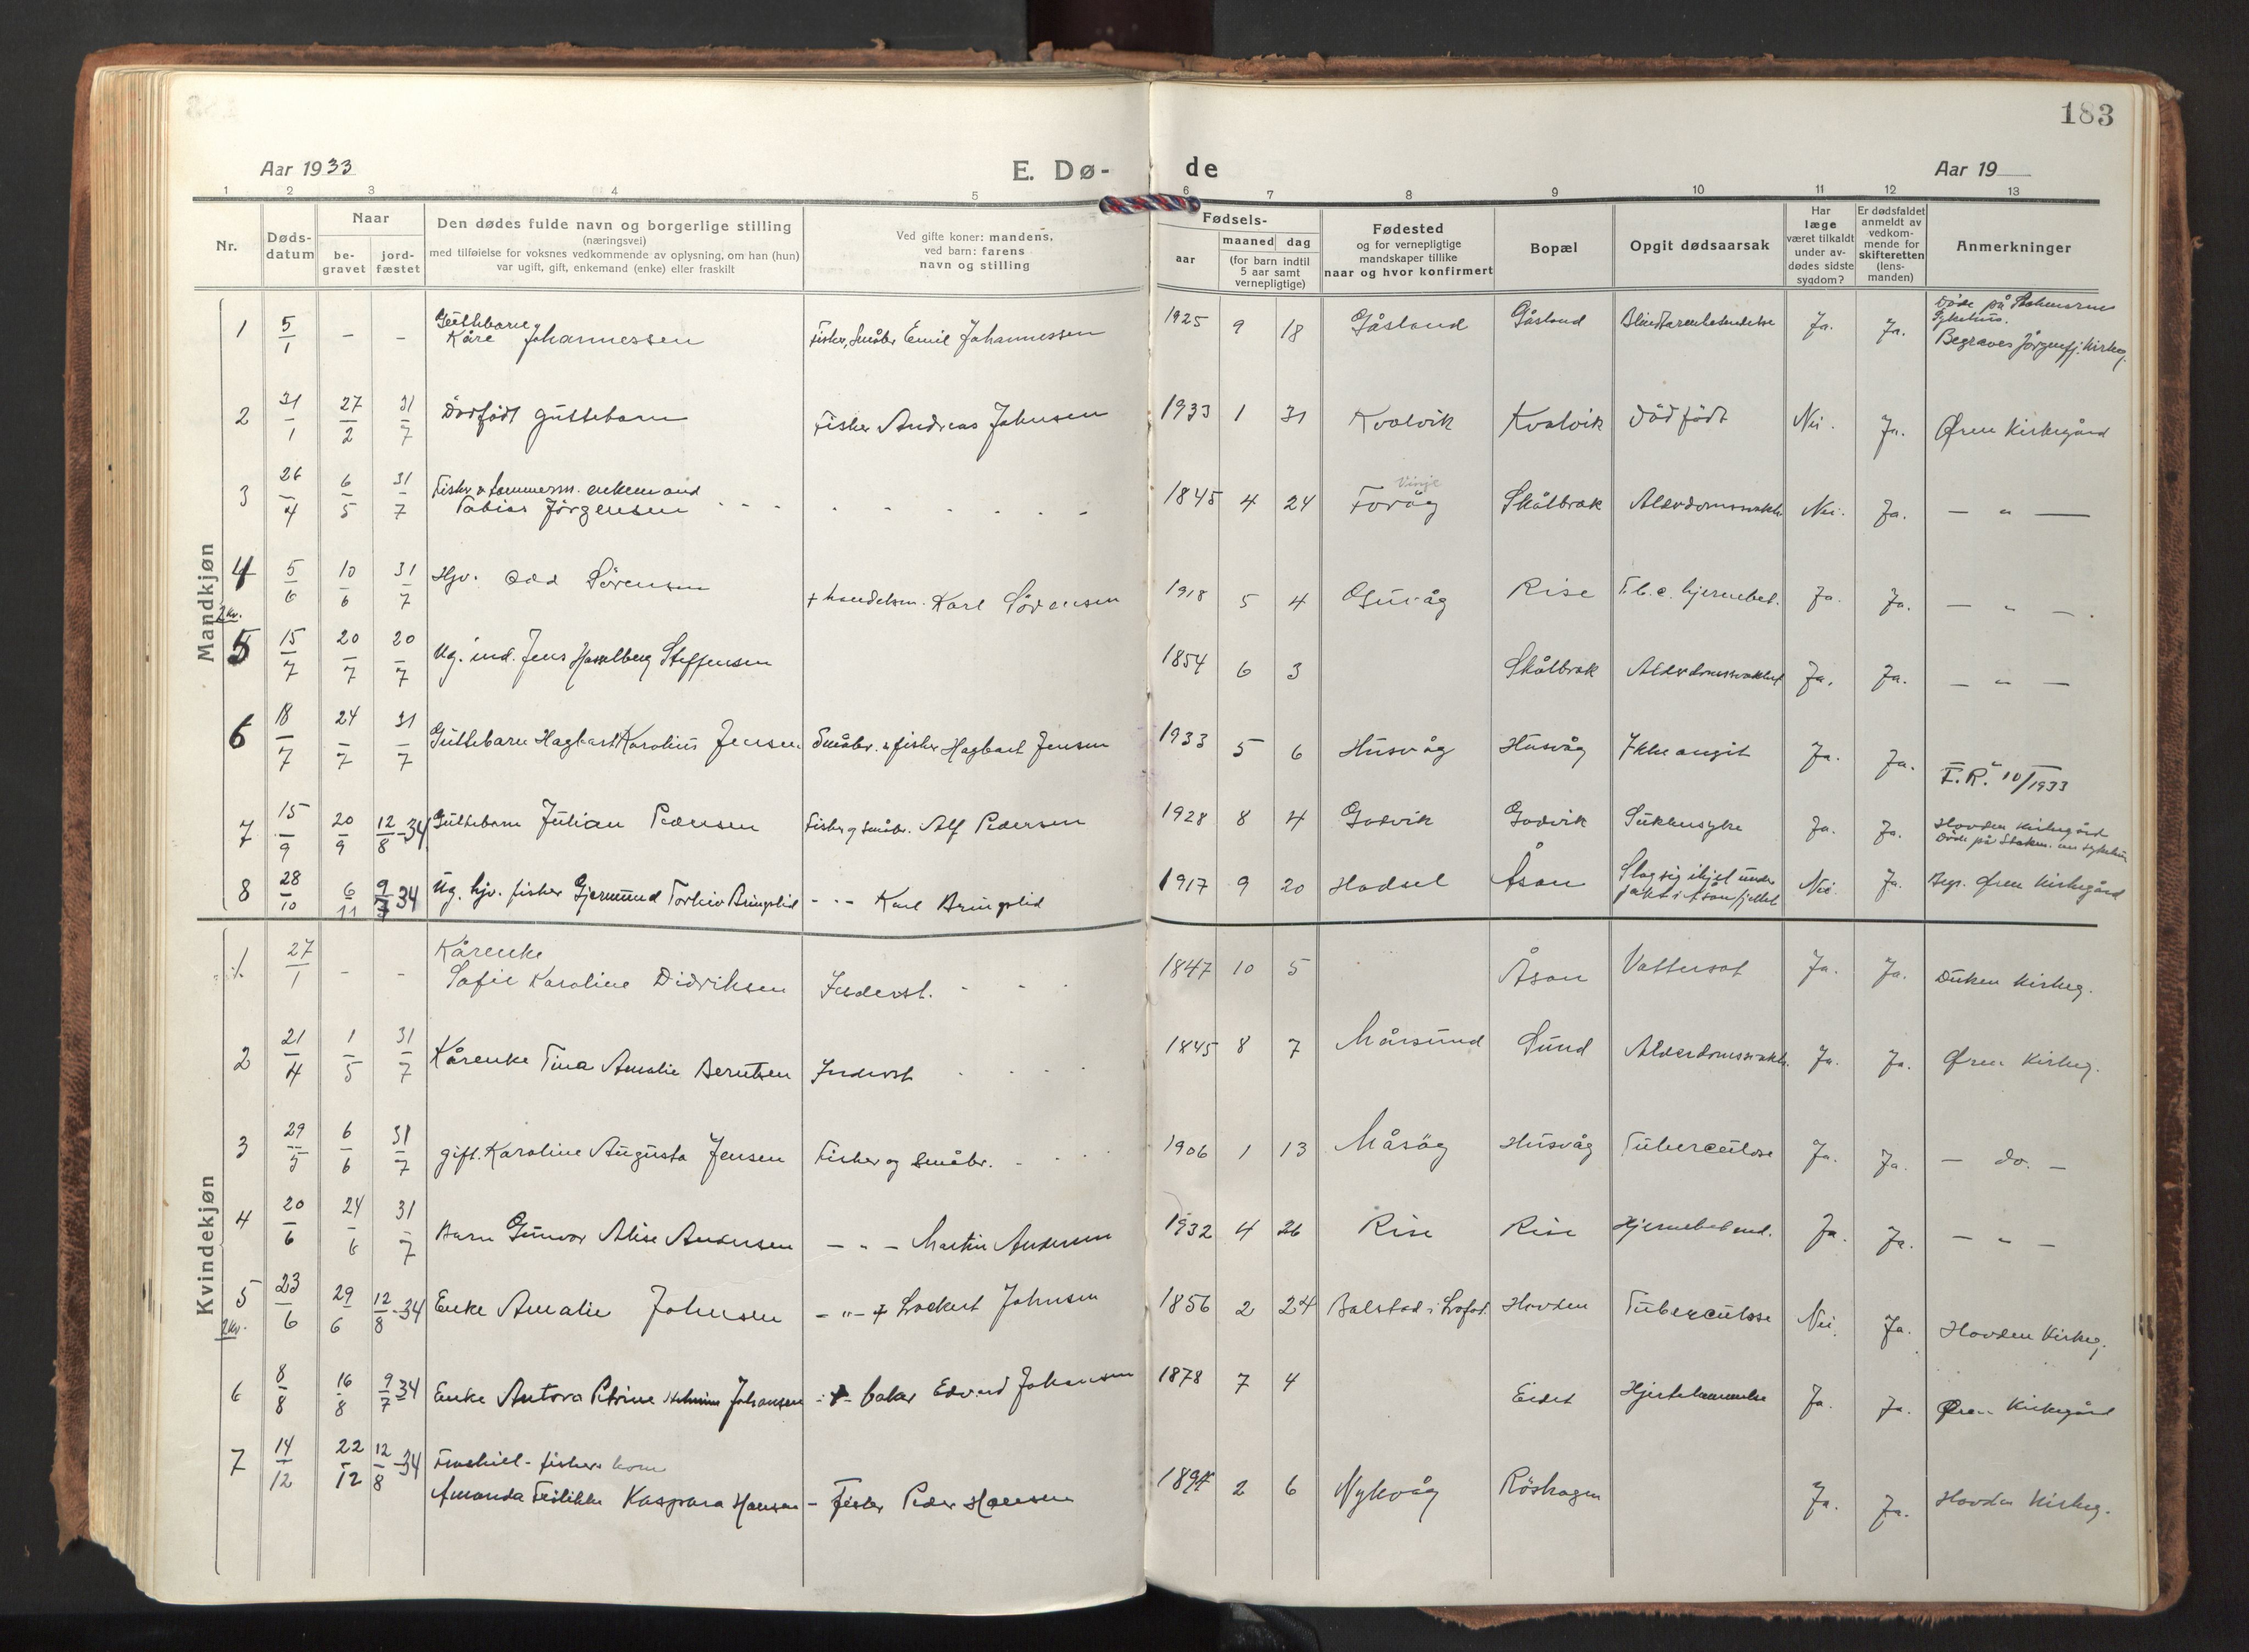 183
Aar 1933 E. Dø- de Aar 19
1 2 3 4 5 6 7 8 9 10 11 12 13
Nr.
Døds-
datum
Naar
be-
gravet
jord-
fæstet
Den dødes fulde navn og borgerlige stilling
(næringsvei)
med tilføielse for voksnes vedkommende av oplysning, om han (hun)
var ugift, gift, enkemand (enke) eller fraskilt
Ved gifte koner: mandens,
ved barn: farens
navn og stilling
Fødsels-
aar
maaned dag
(for barn indtil
5 aar samt
vernepligtige)
Fødested
og for vernepligtige
mandskaper tillike
naar og hvor konfirmert
Bopæl
Opgit dødsaarsak
Har
læge
været tilkaldt
under av-
dødes sidste
sygdom?
Er dødsfaldet
anmeldt av
vedkom-
mende for
skifteretten
(lens-
manden)
Anmerkninger
Mandkjøn
1 5/1 - - Guttebarn Kåre Johannessen Fisker, Småbr Emil Johannessen 1925 9 18 Gåsland Gåsland Blindtarmbetendelse Ja. Ja. Døde på Stokmarkn. Sykehus. Begraves Jörgenfj. Kirkeg.
2 31/1 27/2 31/7 Dødfödt guttebarn Fisker Andreas Johnsen 1933 1 31 Kvalvik Kvalvik Dödfödt Nei. Ja. Øren Kirkegård
3 26/4 6/5 31/7 Fisker & tømmerm. enkemand Tobias Jörgensen 1845 4 24 Vinje Foråg Skålbrak Alderdomssvakh. Nei. Ja. — " —
4 5/6 10/6 31/7 Hjv. Odd Sörensen + handelsm. Karl Sörensen 1918 5 4 Guvåg Rise T.b.c. hjernebet. Ja. Ja. — " —.
2 kv.
5 15/7 20/7 20/7 Ug. ind. Jens Hasselberg Steffensen 1854 6 3 Skålbrak Alderdomssvakhet Ja. Ja. — " —
6 18/7 24/7 31/7 Guttebarn Hagbart Karolius Jensen Småbr. & fisker Hagbart Jensen 1933 5 6 Husvåg Husvåg Ikke angit Ja. Ja. — " — F.R. 10/1933
7 15/9 20/9 12/8-34 Guttebarn Julian Pedersen Fisker og Småbr. Alf Pedersen 1928 8 4 Godvik Godvik Sukkersyke Ja. Ja. Hovden Kirkegård Döde på Stokm. sykehus
8 28/10 6/11 9/7 34 Ug. hjv. fisker Gjermund Torleiv Bringslid - - - Karl Bringslid 1917 9 20 Hadsel Åsan Slog sig ihjel under jakt i Åsanfjellet Nei Ja. Begr. Øren Kirkegård
Kvindekjøn
1. 27/1 - - Kårenke Sofie Karoline Didriksen Inderst. 1847 10 5 Åsan Vattersot Ja. Ja. Öuken Kirkeg.
2 21/4 1/5 31/7 Kårenke Tina Amalie Berntsen Inderst 1845 8 7 Mårsund Sund Alderdomssvakh. Ja. Ja. Øren Kirkeg.
3 29/5 6/6 31/7 gift. Karoline Augusta Jensen Fisker og Småbr. 1906 1 13 Måsög Husvåg Tuberculose Ja. Ja. — do. —
4 20/6 24/6 31/7 Barn Gunvor Alise Andersen — " — Martin Andersen 1932 4 26 Rise Rise Hjernebetend. Ja. Ja. — " —
5 23/6 29/6 12/8-34 Enke Amalie Johnsen — " — + Lockert Johnsen 1856 2 24 Balstad i Lofot. Hovden Tuberculose Nei. Ja. Hovden Kirkeg.
2 kv.
6 8/8 16/8 9/7-34 Enke Antora Petrine Johansen - + - baker Edvard Johansen 1878 7 4 Eidet Hjertelammelse Ja. Ja. Øren Kirkegård
7 14/12 22/12 12/8-34 Fraskilt - fiskers kone Amanda Fredrikke Kaspara Hansen - Fisker Peder Hansen 1894 2 6 Nykvåg Röshagen Ja. Ja. Hovden Kirkeg.